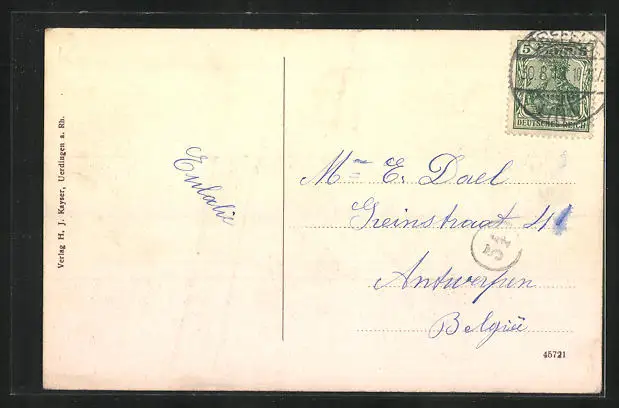 Verlag H. J. Kayser, Uerdingen a. Rh.
Eulalie
5
DEUTSCHES REICH
Mme E. Dael
Greinstraat 41
Antwerpen
België
45721